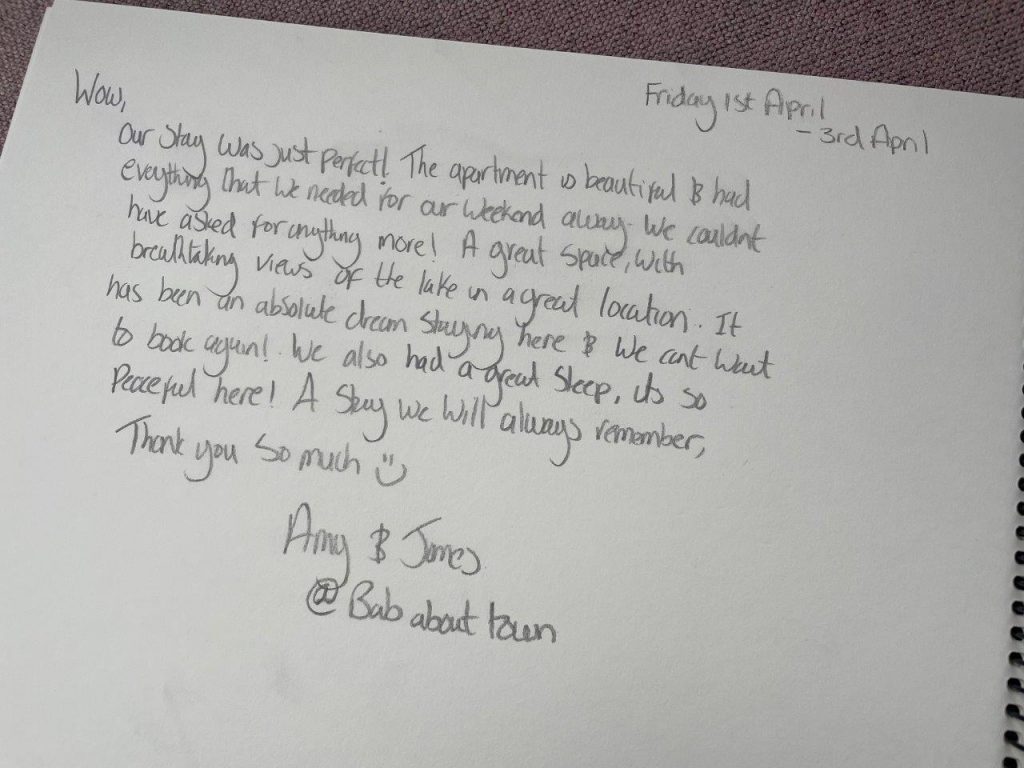 Wow,
Friday 1st April
- 3rd April
Our stay was just perfect! The apartment is beautiful & had
eveything that we needed for our weekend away. We couldnt
have asked for anything more! A great space, with
breathtaking views of the lake in a great location. It
has been an absolute dream staying here & we cant wait
to book again! We also had a great sleep, its so
peaceful here! A stay we will always remember,
Thank you so much :)
Amy & James
@Bab about town